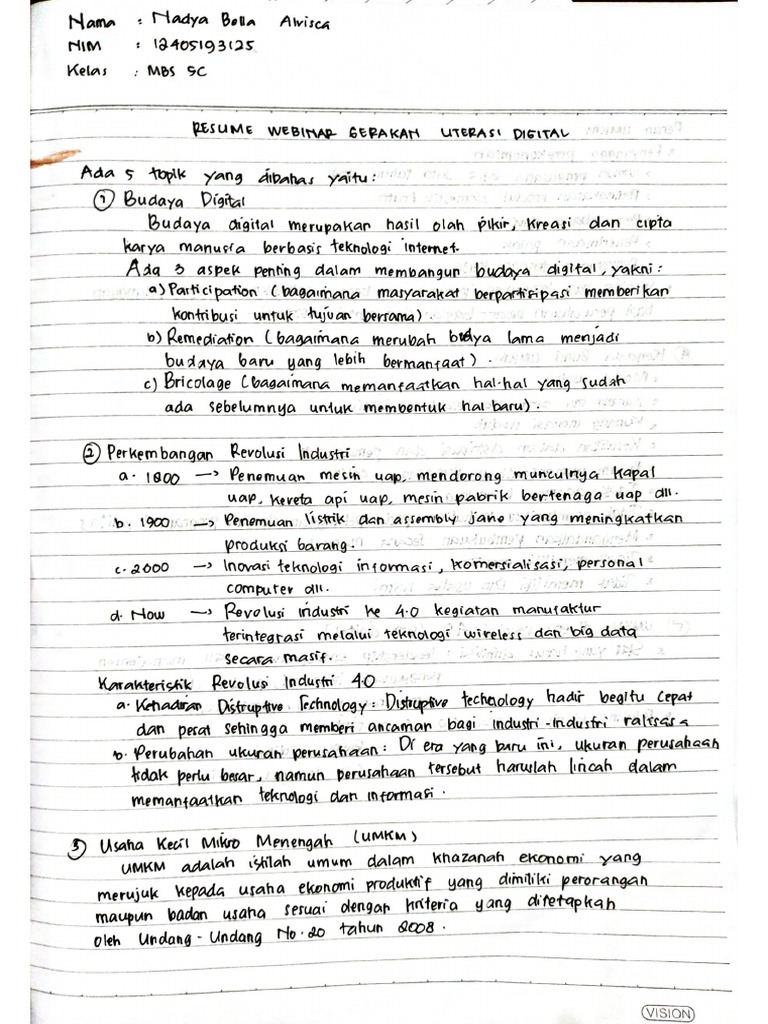 Nama : Nadya Bolla Alrisca
NIM : 12405193125
Kelas : MBS 5C
RESUME WEBINAR GERAKAN LITERASI DIGITAL
Ada 5 topik yang dibahas yaitu:
① Budaya Digital
Budaya digital merupakan hasil olah pikir, kreasi dan cipta
karya manusia berbasis teknologi internet.
Ada 3 aspek penting dalam membangun budaya digital, yakni :
a) Participation (bagaimana masyarakat berpartisipasi memberikan
kontribusi untuk tujuan bersama).
b) Remediation (bagaimana merubah budya lama menjadi
budaya baru yang lebih bermanfaat).
c) Bricolage (bagaimana memanfaatkan hal-hal yang sudah
ada sebelumnya untuk membentuk hal baru).
② Perkembangan Revolusi Industri
a. 1800 → Penemuan mesin uap, mendorong munculnya kapal
uap, kereta api uap, mesin pabrik bertenaga uap dll.
b. 1900 → Penemuan listrik dan assembly jane yang meningkatkan
produksi barang.
c. 2000 → Inovasi teknologi informasi, komersialisasi, personal
computer dll.
d. Now → Revolusi industri ke 4.0 kegiatan manufaktur
terintegrasi melalui teknologi wireless dan big data
secara masif.
Karakteristik Revolusi Industri 4.0
a. Kehadiran Distruptive Technology : Distruptive technology hadir begitu cepat
dan pesat sehingga memberi ancaman bagi industri-industri raksasa
b. Perubahan ukuran perusahaan : Di era yang baru ini, ukuran perusahaan
tidak perlu besar, namun perusahaan tersebut haruslah lincah dalam
memanfaatkan teknologi dan informasi.
③ Usaha Kecil Mikro Menengah (UMKM)
UMKM adalah istilah umum dalam khazanah ekonomi yang
merujuk kepada usaha ekonomi produktif yang dimiliki perorangan
maupun badan usaha sesuai dengan kriteria yang ditetapkan
oleh Undang-Undang No.20 tahun 2008.
VISION